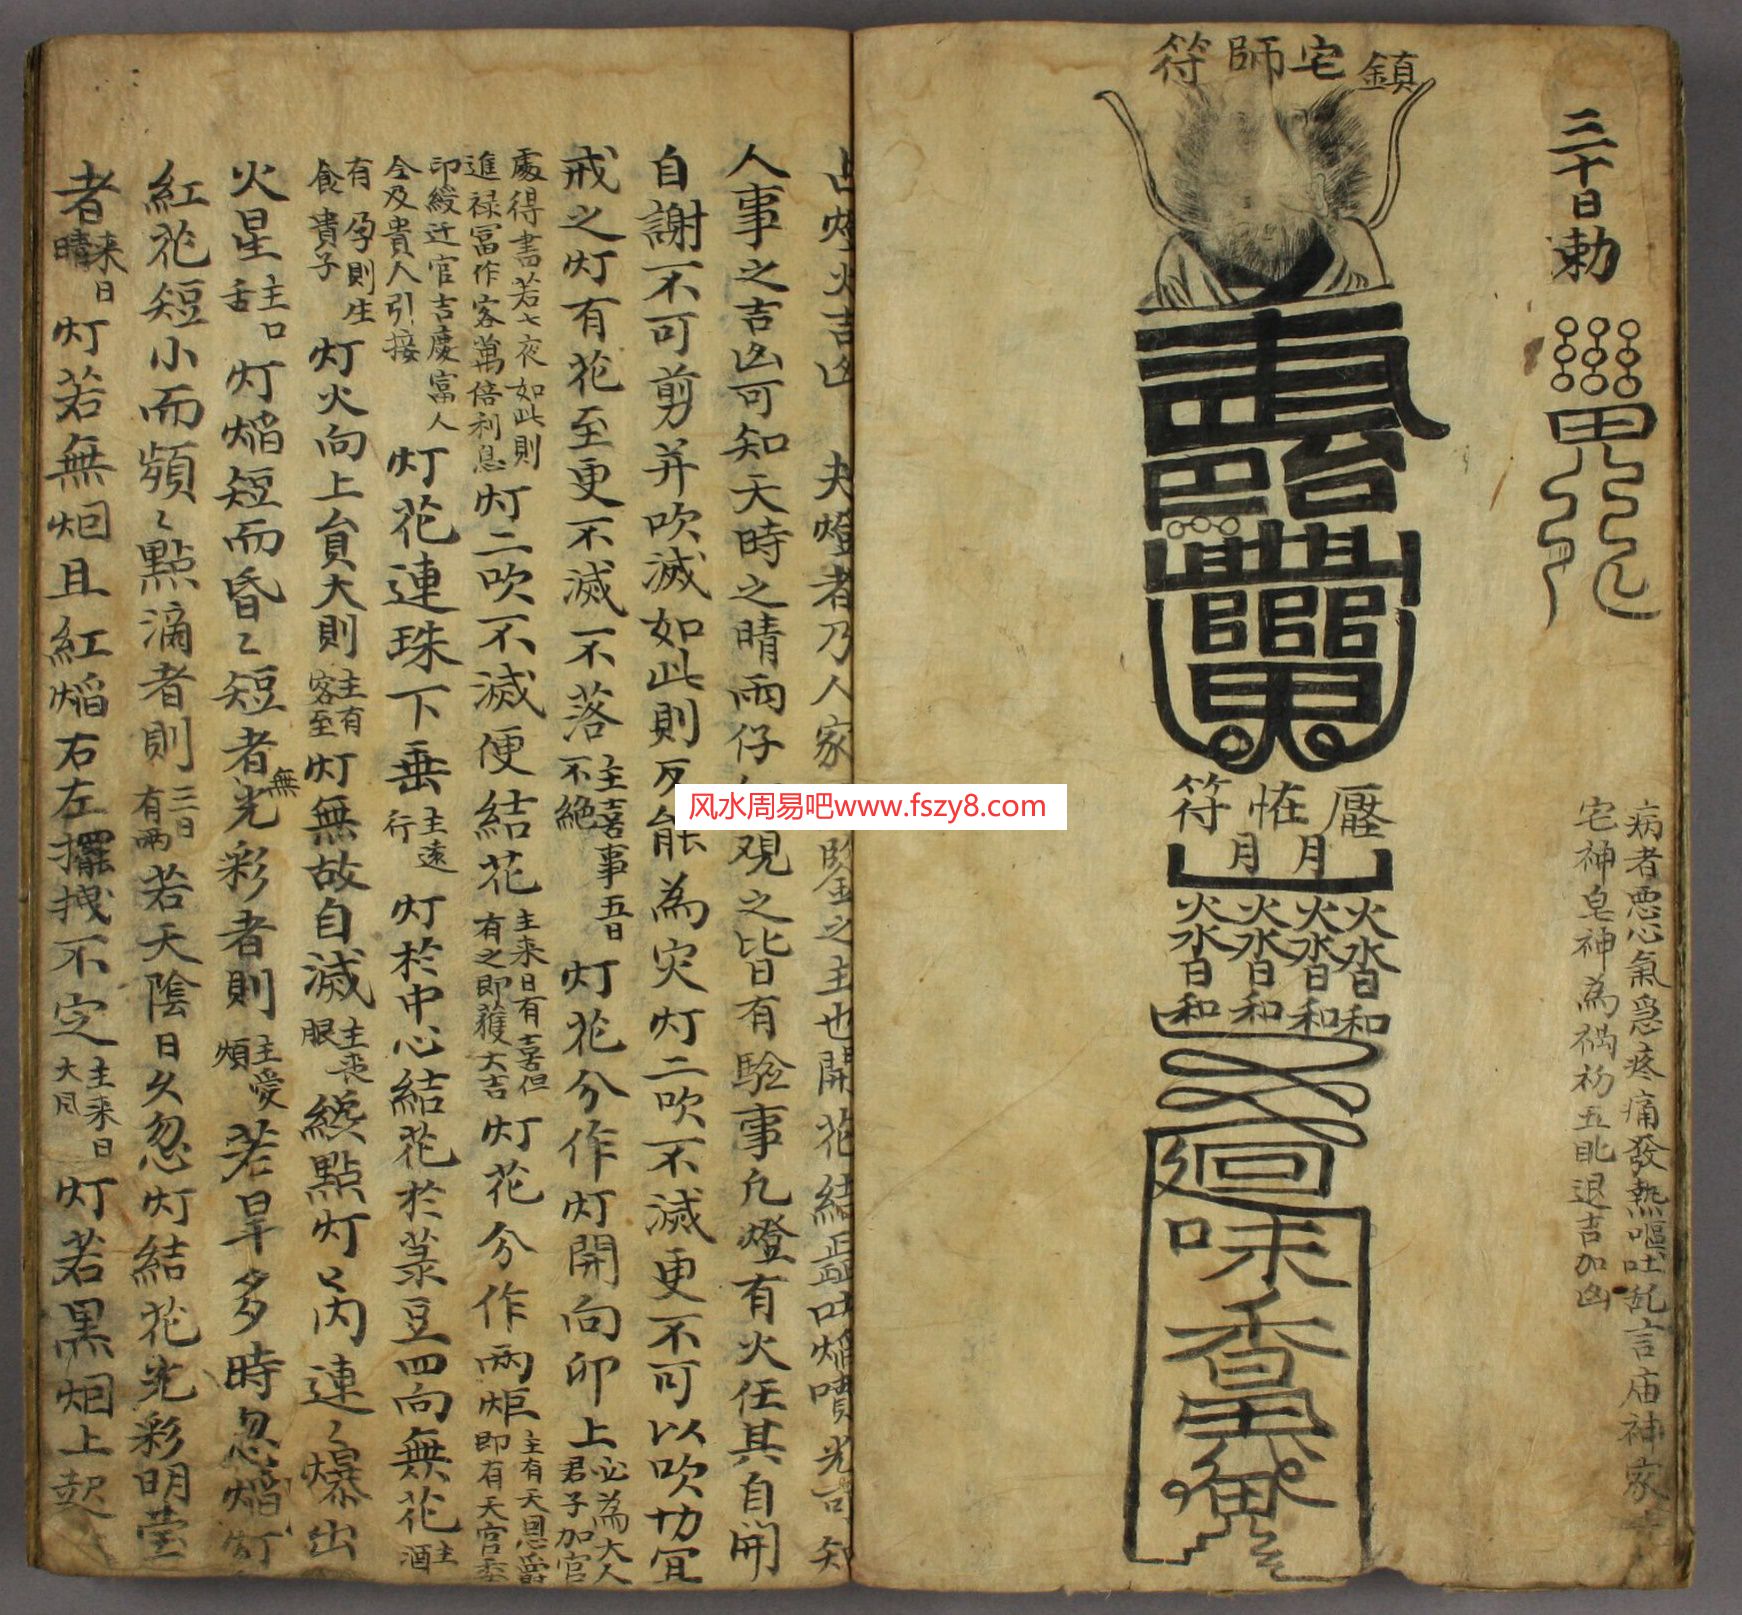 三十日勅
病者悪心氣急疼痛發熱嘔吐乱言庙神家
宅神皂神為禍初五日退吉加凶
鎮宅師符
壓怪符
月月
火火火火
水水水水
日日日日
和和和和
迴
味
香
占灯火吉凶 夫燈者乃人家 鑒之主也開花結蕊吐焰噴光可知
人事之吉凶可知天時之晴雨仔 觀之皆有驗事凡燈有火任其自開
自謝不可剪并吹滅如此則反能為灾灯二吹不滅更不可以吹切宜
戒之灯有花至更不滅不落主喜事五日不絕灯花分作灯開向卯上必為大人君子加官
處得書若七夜如此則進禄冨作客萬倍利息灯二吹不滅便結花主来日有喜但有之即獲大吉灯花分作兩炬主有天恩爵即有天官委
印綬迁官吉慶富人全及貴人引接灯花連珠下垂主遠行灯於中心結花於菉豆四向無花主酒
有孕則生貴子食灯火向上負大則主有客至灯無故自滅主喪服纔點灯只丙連々爆出
火星主口舌灯焰短而昏々短者無光彩者則主愛煩若旱多時忽焰灯
紅花短小而頻々點滴者則三日有雨若天陰日久忽灯結花光彩明莹
者来日晴灯若無烟且紅焰右左擺拽不定主来日大風灯若黒烟上起
风水周易吧www.fszy8.com